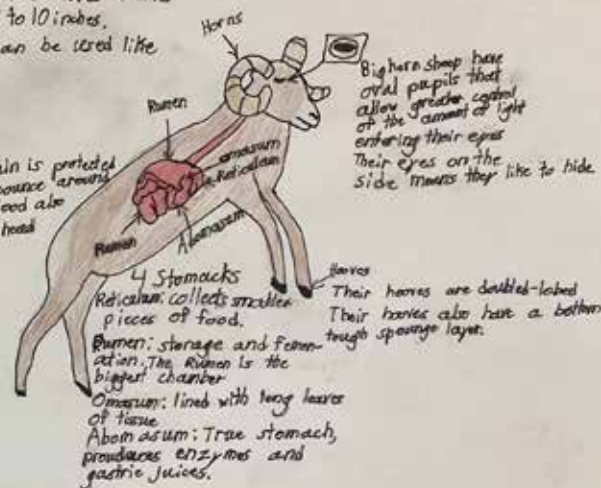 to 10 inches.
an be used like
Horns
Rumen
Bighorn sheep have
oval pupils that
allow greater control
of the amount of light
entering their eyes
Their eyes on the
side means they like to hide
in is protected
ounce around
ood also
head
omasum
Reticulum
Rumen
Abomasum
4 Stomacks
Reticulum: collects smaller
pieces of food.
Rumen: storage and femen-
ation. The Rumen is the
biggest chamber
Omasum: lined with long leaves
of tissue
Abomasum: True stomach,
prouduces enzymes and
gastric juices.
Hooves
Their hooves are doubled-lobed
Their hooves also have a bottom
tough spounge layer.